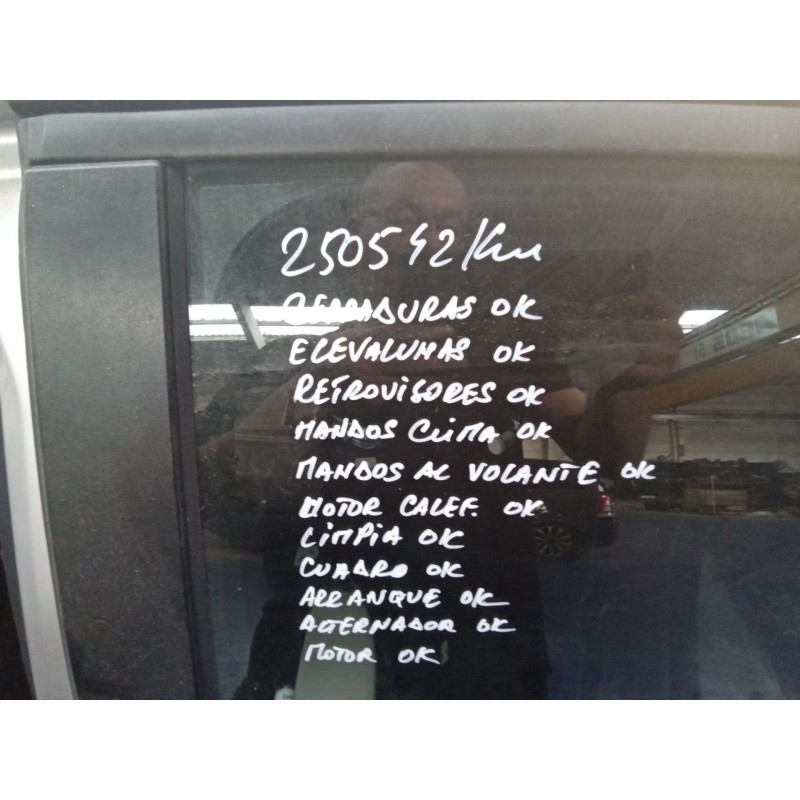 250542/Km
CERRADURAS OK
ELEVALUNAS OK
RETROVISORES OK
MANDOS CLIMA OK
MANDOS AL VOLANTE OK
MOTOR CALEF. OK
LIMPIA OK
CUADRO OK
ARRANQUE OK
ALTERNADOR OK
MOTOR OK